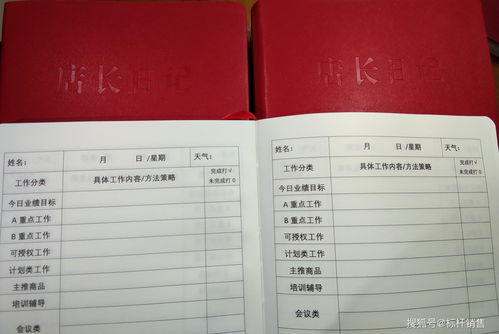 店长日记
店长日记
姓名： 月 日 /星期 天气：
工作分类 具体工作内容/方法策略 完成打 √ 未完成打 0
今日业绩目标
A 重点工作
B 重点工作
可授权工作
计划类工作
主推商品
培训辅导
会议类
姓名： 月 日 /星期 天气：
工作分类 具体工作内容/方法策略 完成打 √ 未完成打 0
今日业绩目标
A 重点工作
B 重点工作
可授权工作
计划类工作
主推商品
培训辅导
会议类
搜狐号@标杆销售